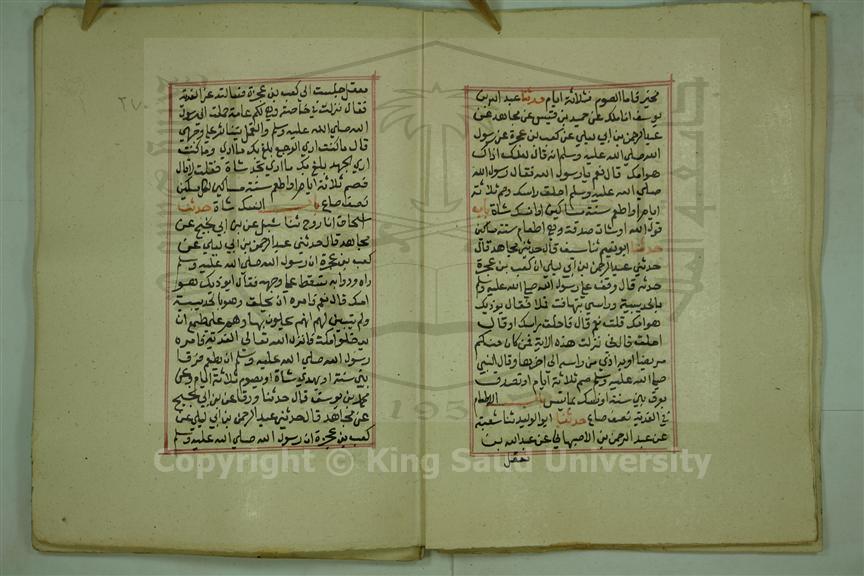 مخير فاما الصوم فثلاثة ايام حدثنا عبد الله بن
يوسف انا ملك عن حميد بن قيس عن مجاهد عن
عبد الرحمن بن ابي ليلي عن كعب بن عجرة عن رسول
الله صلي الله عليه وسلم انه قال لعلك اذاك
هوامك قال نعم يا رسول الله فقال رسول الله
صلي الله عليه وسلم احلق راسك وصم ثلاثة
ايام او اطعم ستة مساكين او انسك شاة باب
قول الله او صدقة وهي اطعام ستة مساكين
حدثنا ابو نعيم ثنا سيف قال حدثني مجاهد قال
حدثني عبد الرحمن بن ابي ليلي ان كعب بن عجرة
حدثه قال وقف علي رسول الله صلي الله عليه وسلم
بالحديبية وراسي يتهافت قملا فقال يوذيك
هوامك قلت نعم قال فاحلق راسك او قال
احلق قال في نزلت هذه الاية فمن كان منكم
مريضا او به اذي من راسه الي اخرها فقال النبي
صلي الله عليه وسلم صم ثلاثة ايام او تصدق
بفرق بين ستة او انسك بما تيسر باب الاطعام
في الفدية نصف صاع حدثنا ابو الوليد ثنا شعبة
عن عبد الرحمن بن الاصبهاني عن عبد الله بن
معقل
معقل جلست الي كعب بن عجرة فسالته عن الفدية
فقال نزلت في خاصة وهي لكم عامة حملت الي رسول
الله صلي الله عليه وسلم والقمل يتناثر علي وجهي
قال ما كنت اري الوجع بلغ بك ما اري وما كنت
اري الجهد بلغ بك ما اري تجد شاة فقلت لا قال
فصم ثلاثة ايام او اطعم ستة مساكين لكل مسكين
نصف صاع باب النسك شاة حدثنا
اسحاق انا روح ثنا شبل عن بن ابي نجيح عن
مجاهد قال حدثني عبد الرحمن بن ابي ليلي عن
كعب بن عجرة ان رسول الله صلي الله عليه وسلم
راه ودوابه تسقط علي وجهه فقال ايوذيك هوا
مك قال نعم فامره ان يحلق وهو بالحديبية
ولم يتبين لهم انهم يحلون بها وهم علي طمع ان
يدخلوا مكة فانزل الله تعالي الفدية فامره
رسول الله صلي الله عليه وسلم ان يطعم فرقا
بين ستة او يهدي شاة او يصوم ثلاثة ايام وعن
محمد بن يوسف قال حدثنا ورقا عن بن ابي نجيح
عن مجاهد قال حدثني عبد الرحمن بن ابي ليلي عن
كعب بن عجرة ان رسول الله صلي الله عليه وسلم
٢٧٠
Copyright © King Saud University